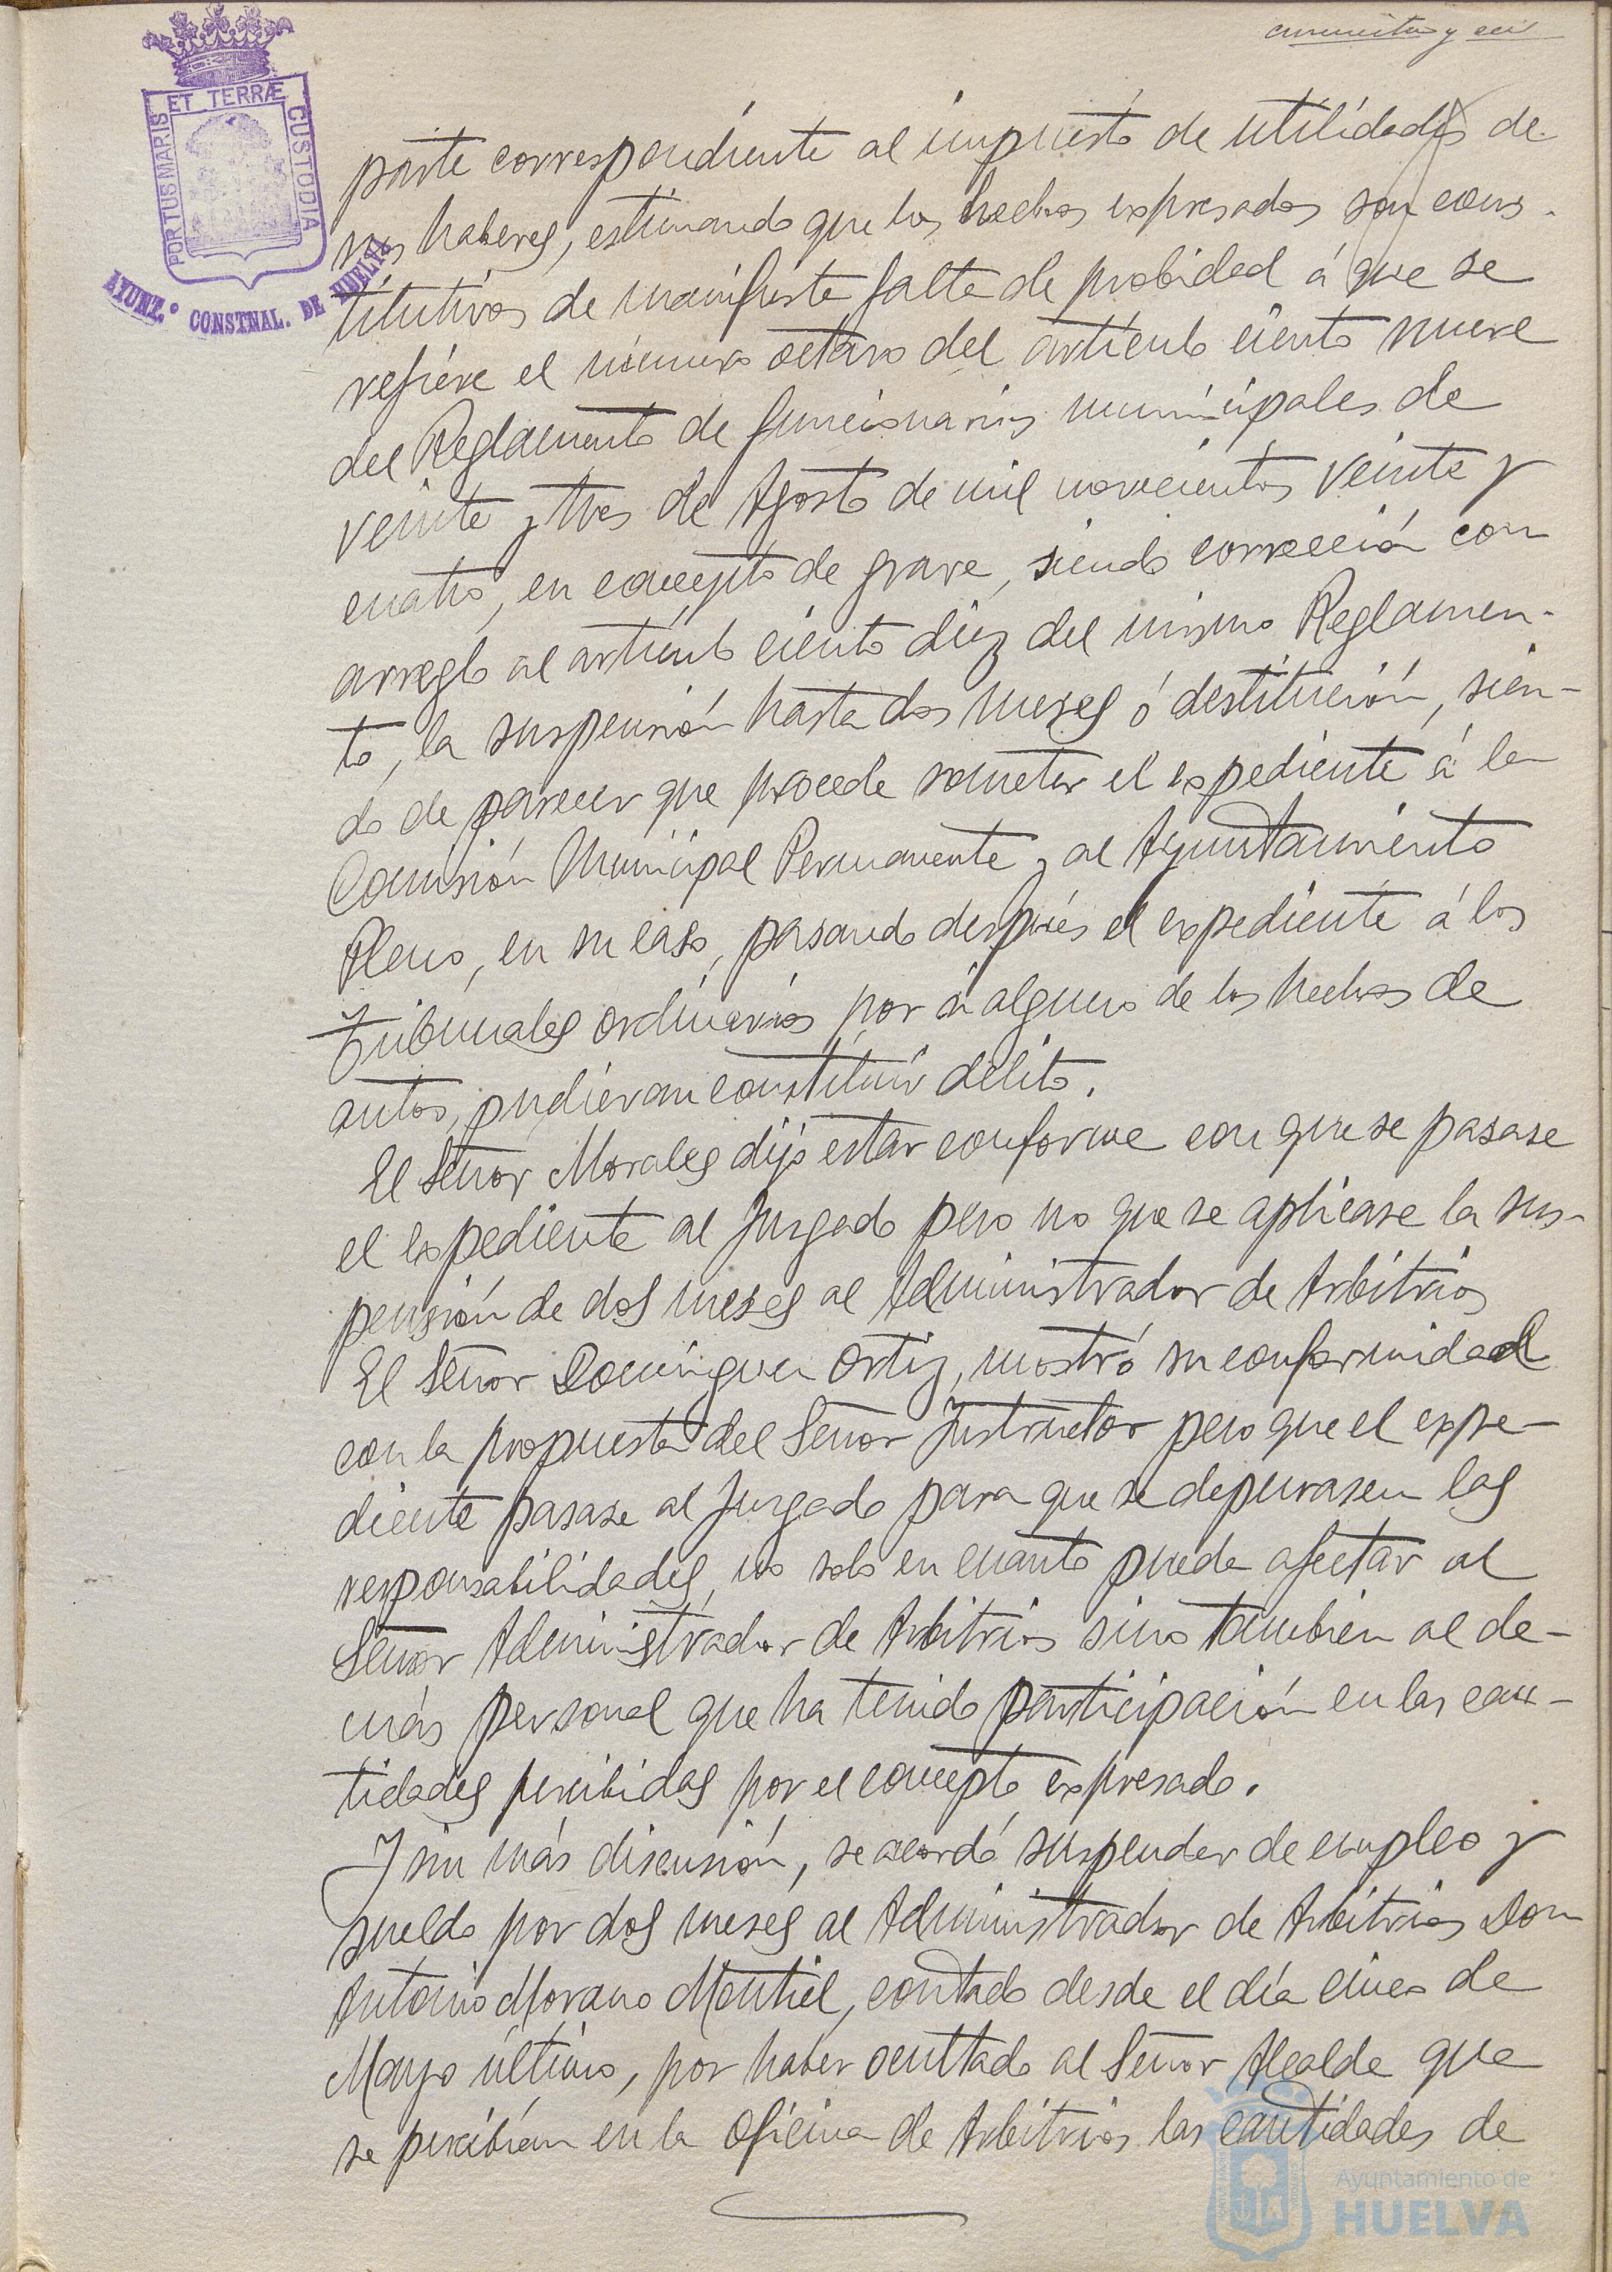 cincuenta y seis
ET TERRÆ
PORTUS MARIS
CUSTODIA
AYUNZ.º CONSTNAL. DE HUELVA
parte correspondiente al impuesto de utilidades de
sus haberes, estimando que los hechos expresados son cons-
titutivos de manifiesta falta de probidad á que se
refiere el número octavo del artículo ciento nueve
del Reglamento de funcionarios municipales de
veinte y tres de Agosto de mil novecientos veinte y
cuatro, en concepto de grave, siendo corrección con
arreglo al artículo ciento diez del mismo Reglamen-
to, la suspensión hasta dos meses ó destitución, sien-
do de parecer que procede someter el expediente á la
Comisión Municipal Permanente y al Ayuntamiento
Pleno, en su caso, pasando después el expediente á los
Tribunales ordinarios por si alguno de los hechos de
autos, pudieran constituir delito.
El Señor Morales dijo estar conforme con que se pasase
el expediente al Juzgado pero no que se aplicase la sus-
pensión de dos meses al Administrador de Arbitrios
El Señor Dominguez Ortiz, mostró su conformidad
con la propuesta del Señor Instructor pero que el expe-
diente pasase al Juzgado para que se depurasen las
responsabilidades, no solo en cuanto pueda afectar al
Señor Administrador de Arbitrios sino tambien al de-
más personal que ha tenido participación en las can-
tidades percibidas por el concepto expresado.
Y sin más discusión, se acordó suspender de empleo y
sueldo por dos meses al Administrador de Arbitrios Don
Antonio Morano Montiel, contado desde el día cinco de
Mayo último, por haber ocultado al Señor Alcalde que
se percibían en la Oficina de Arbitrios las cantidades de
Ayuntamiento de
HUELVA